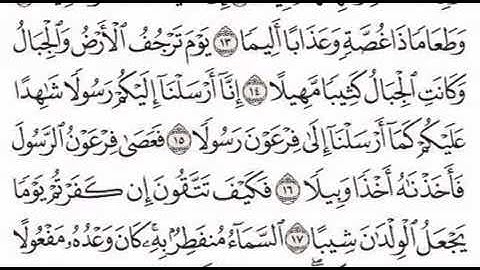 وَطَعَامًا ذَا غُصَّةٍ وَعَذَابًا أَلِيمًا ١٣ يَوْمَ تَرْجُفُ ٱلْأَرْضُ وَٱلْجِبَالُ
وَكَانَتِ ٱلْجِبَالُ كَثِيبًا مَّهِيلًا ١٤ إِنَّآ أَرْسَلْنَآ إِلَيْكُمْ رَسُولًا شَٰهِدًا
عَلَيْكُمْ كَمَآ أَرْسَلْنَآ إِلَىٰ فِرْعَوْنَ رَسُولًا ١٥ فَعَصَىٰ فِرْعَوْنُ ٱلرَّسُولَ
فَأَخَذْنَٰهُ أَخْذًا وَبِيلًا ١٦ فَكَيْفَ تَتَّقُونَ إِن كَفَرْتُمْ يَوْمًا
يَجْعَلُ ٱلْوِلْدَٰنَ شِيبًا ١٧ ٱلسَّمَآءُ مُنفَطِرٌۢ بِهِۦ ۚ كَانَ وَعْدُهُۥ مَفْعُولًا